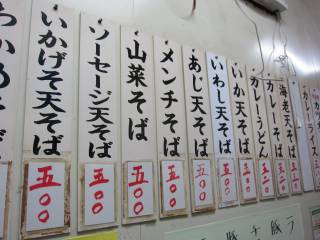 わかめそば
いかげそ天そば
五〇〇
ソーセージ天そば
五〇〇
山菜そば
五〇〇
メンチそば
五〇〇
あじ天そば
五〇〇
いわし天そば
五〇〇
いか天そば
五〇〇
カレーうどん
五〇〇
カレーそば
五〇〇
海老天そば
五〇〇
カレー
カレーライス